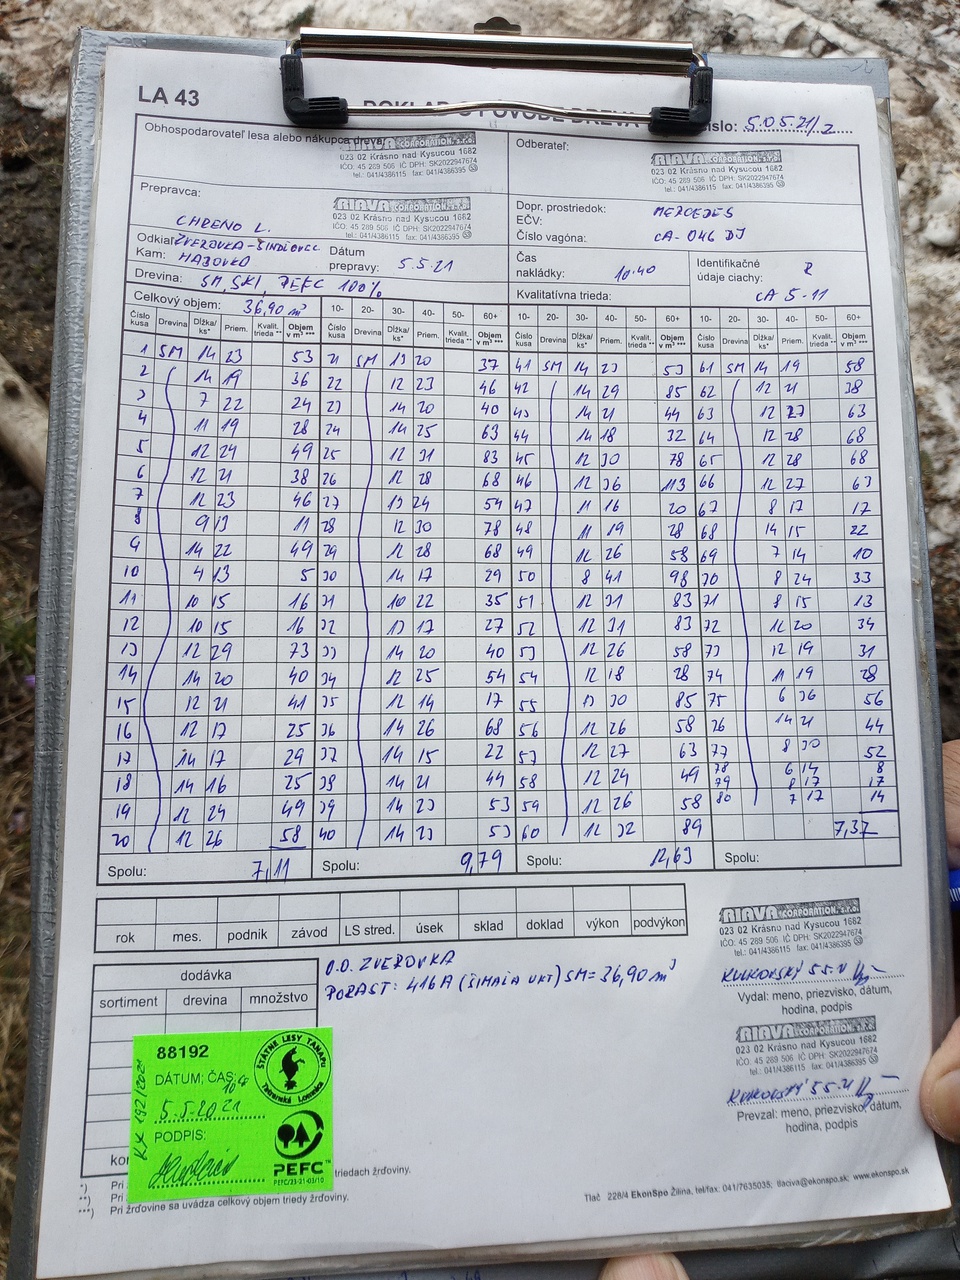 LA 43
číslo: 5.05.21/2
Obhospodarovateľ lesa alebo nákupca dreva:
RIAVA CORPORATION, s.r.o.
023 02 Krásno nad Kysucou 1682
IČO: 45 289 506 IČ DPH: SK2022947674
tel.: 041/4386115 fax: 041/4386395
Odberateľ:
RIAVA CORPORATION, s.r.o.
023 02 Krásno nad Kysucou 1682
IČO: 45 289 506 IČ DPH: SK2022947674
tel.: 041/4386115 fax: 041/4386395
Prepravca:
CHRENO L.
RIAVA CORPORATION, s.r.o.
023 02 Krásno nad Kysucou 1682
IČO: 45 289 506 IČ DPH: SK2022947674
tel.: 041/4386115 fax: 041/4386395
Dopr. prostriedok: MERCEDES
EČV:
Číslo vagóna: CA-046 DJ
Odkiaľ: ZVEROVKA-
Kam: HABOVKO
Dátum
prepravy: 5.5.21
Čas
nakládky: 10.40
Identifikačné
údaje ciachy: R
CA 5-11
Drevina: SM, SKI, PEFC 100%
Kvalitatívna trieda:
Celkový objem: 36,90 m³
10- 20- 30- 40- 50- 60+ 10- 20- 30- 40- 50- 60+
Číslo kusa Drevina Dĺžka/ ks* Priem. Kvalit. trieda** Objem v m³ ***
Číslo kusa Drevina Dĺžka/ ks* Priem. Kvalit. trieda** Objem v m³ ***
Číslo kusa Drevina Dĺžka/ ks* Priem. Kvalit. trieda** Objem v m³ ***
Číslo kusa Drevina Dĺžka/ ks* Priem. Kvalit. trieda** Objem v m³ ***
1 SM 14 23 53 21 SM 13 20 37 41 SM 14 23 53 61 SM 14 19 58
2 14 19 36 22 12 23 46 42 14 29 85 62 12 21 38
3 7 22 24 23 14 20 40 43 14 21 44 63 12 27 63
4 11 19 28 24 14 25 63 44 14 18 32 64 12 28 68
5 12 24 49 25 12 31 83 45 12 30 78 65 12 28 68
6 12 21 38 26 12 28 68 46 12 36 113 66 12 27 63
7 12 23 46 27 13 24 54 47 11 16 20 67 8 17 17
8 9 13 11 28 12 30 78 48 11 19 28 68 14 15 22
9 14 22 49 29 12 28 68 49 12 26 58 69 7 14 10
10 4 13 5 30 14 17 29 50 8 41 98 70 8 24 33
11 10 15 16 31 10 22 35 51 12 31 83 71 8 15 13
12 10 15 16 32 13 17 27 52 12 31 83 72 12 20 34
13 12 29 73 33 14 20 40 53 12 26 58 73 12 19 31
14 14 20 40 34 12 25 54 54 12 18 28 74 11 19 28
15 12 21 41 35 12 14 17 55 13 30 85 75 6 36 56
16 12 17 25 36 14 26 68 56 12 26 58 76 14 21 44
17 14 17 29 37 14 15 22 57 12 27 63 77 8 30 52
18 14 16 25 38 14 21 44 58 12 24 49 78 6 14 8
79 8 17 17
19 12 24 49 39 14 23 53 59 12 26 58 80 7 17 14
20 12 26 58 40 14 23 53 60 12 32 89 7,37
Spolu: 7,11 Spolu: 9,79 Spolu: 12,63 Spolu:
rok mes. podnik závod LS stred. úsek sklad doklad výkon podvýkon
dodávka
sortiment drevina množstvo
O.O. ZVEROVKA
PORAST: 416A (ŠIMALA VKT) SM= 36,90 m³
RIAVA CORPORATION, s.r.o.
023 02 Krásno nad Kysucou 1682
IČO: 45 289 506 IČ DPH: SK2022947674
tel.: 041/4386115 fax: 041/4386395
Vydal: meno, priezvisko, dátum,
hodina, podpis
RIAVA CORPORATION, s.r.o.
023 02 Krásno nad Kysucou 1682
IČO: 45 289 506 IČ DPH: SK2022947674
tel.: 041/4386115 fax: 041/4386395
Prevzal: meno, priezvisko, dátum,
hodina, podpis
88192
DÁTUM; ČAS:
5.5.2021
PODPIS:
KX 192/2021
ŠTÁTNE LESY TANAPU
Tatranská Lomnica
PEFC™
PEFC/23-21-03/10
*) Pri triedach žrďoviny.
**) Pri
***) Pri žrďovine sa uvádza celkový objem triedy žrďoviny.
Tlač 228/4 EkonSpo Žilina, tel/fax: 041/7635035; tlaciva@ekonspo.sk; www.ekonspo.sk